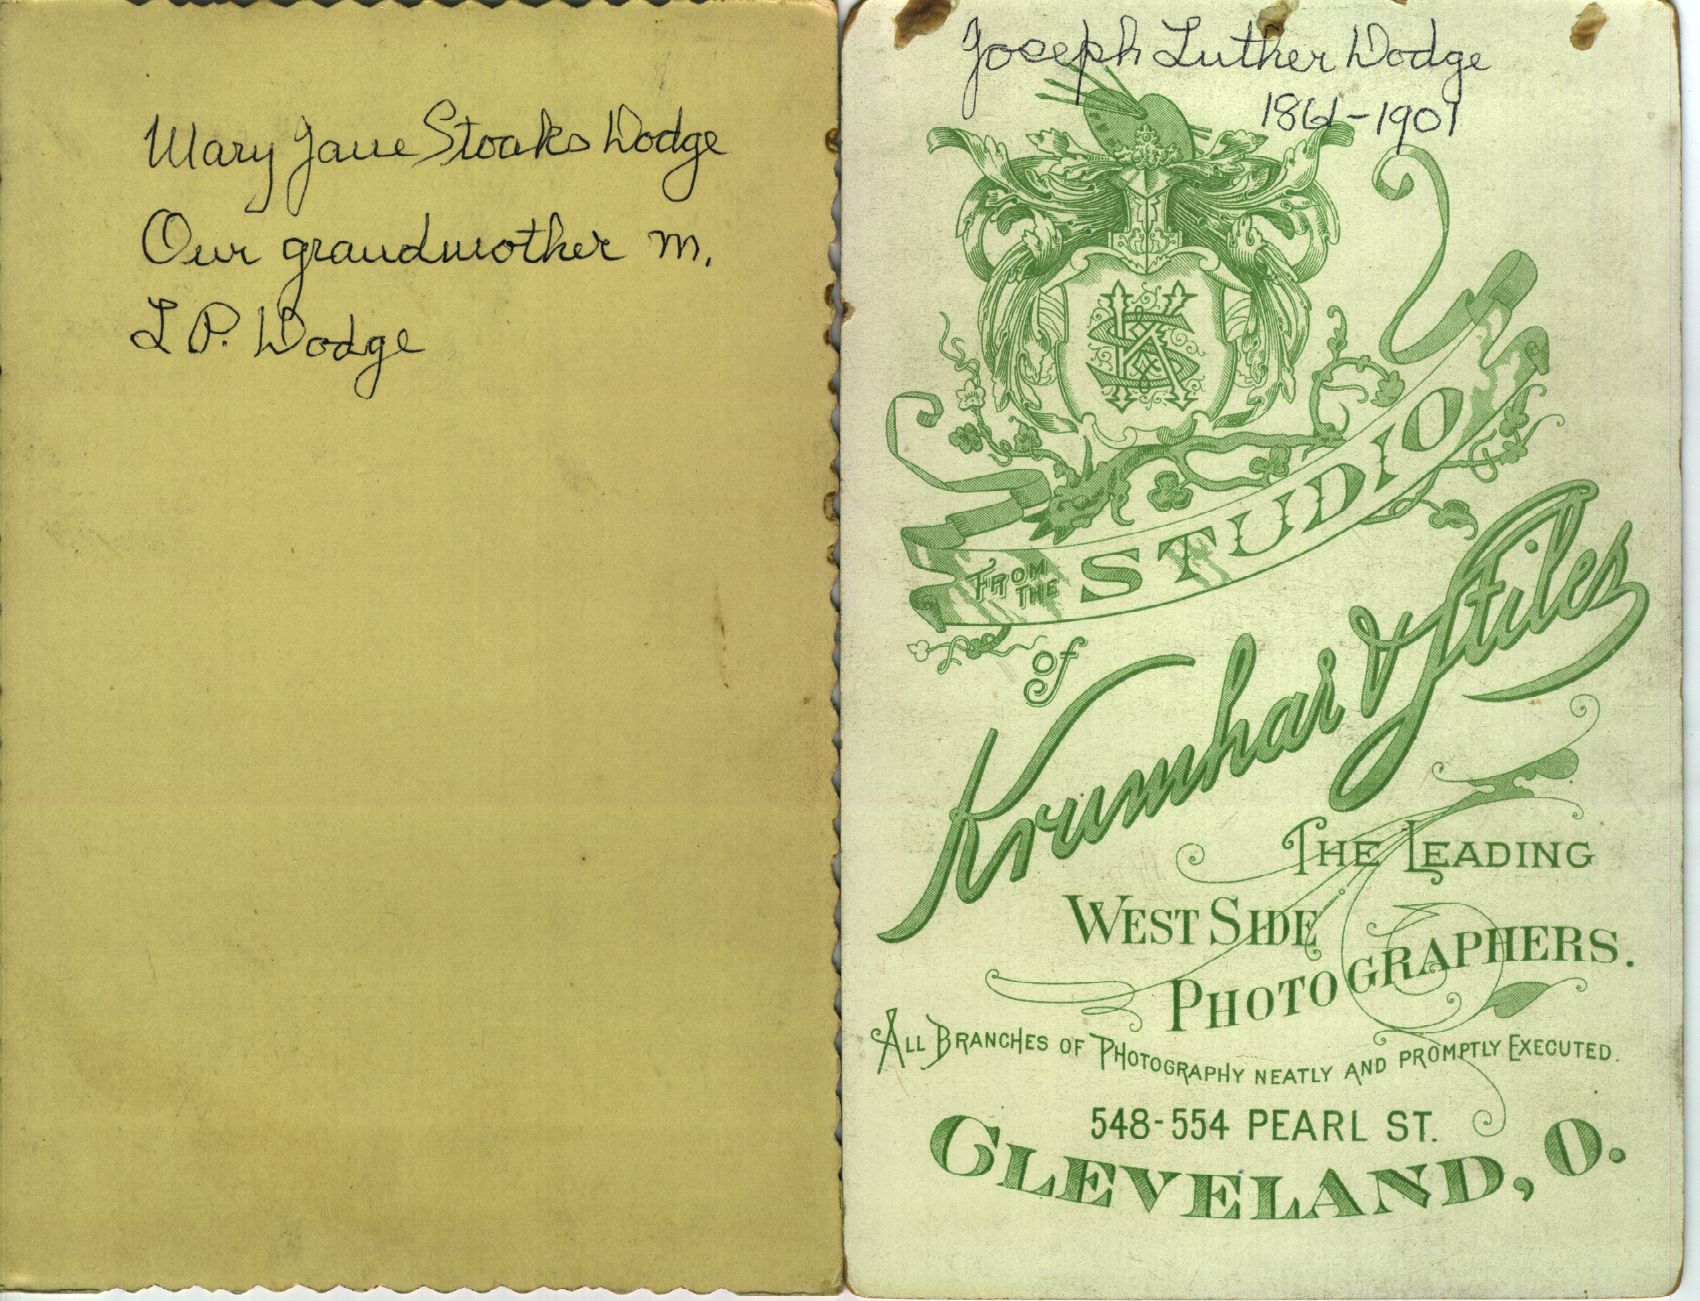 Mary Jane Stoaks Dodge
Our grandmother m.
L P. Dodge
Joseph Luther Dodge
1861-1901
FROM THE STUDIO
of
Krumhar & Stiles
THE LEADING
WEST SIDE
PHOTOGRAPHERS.
ALL BRANCHES OF PHOTOGRAPHY NEATLY AND PROMPTLY EXECUTED.
548-554 PEARL ST.
CLEVELAND, O.